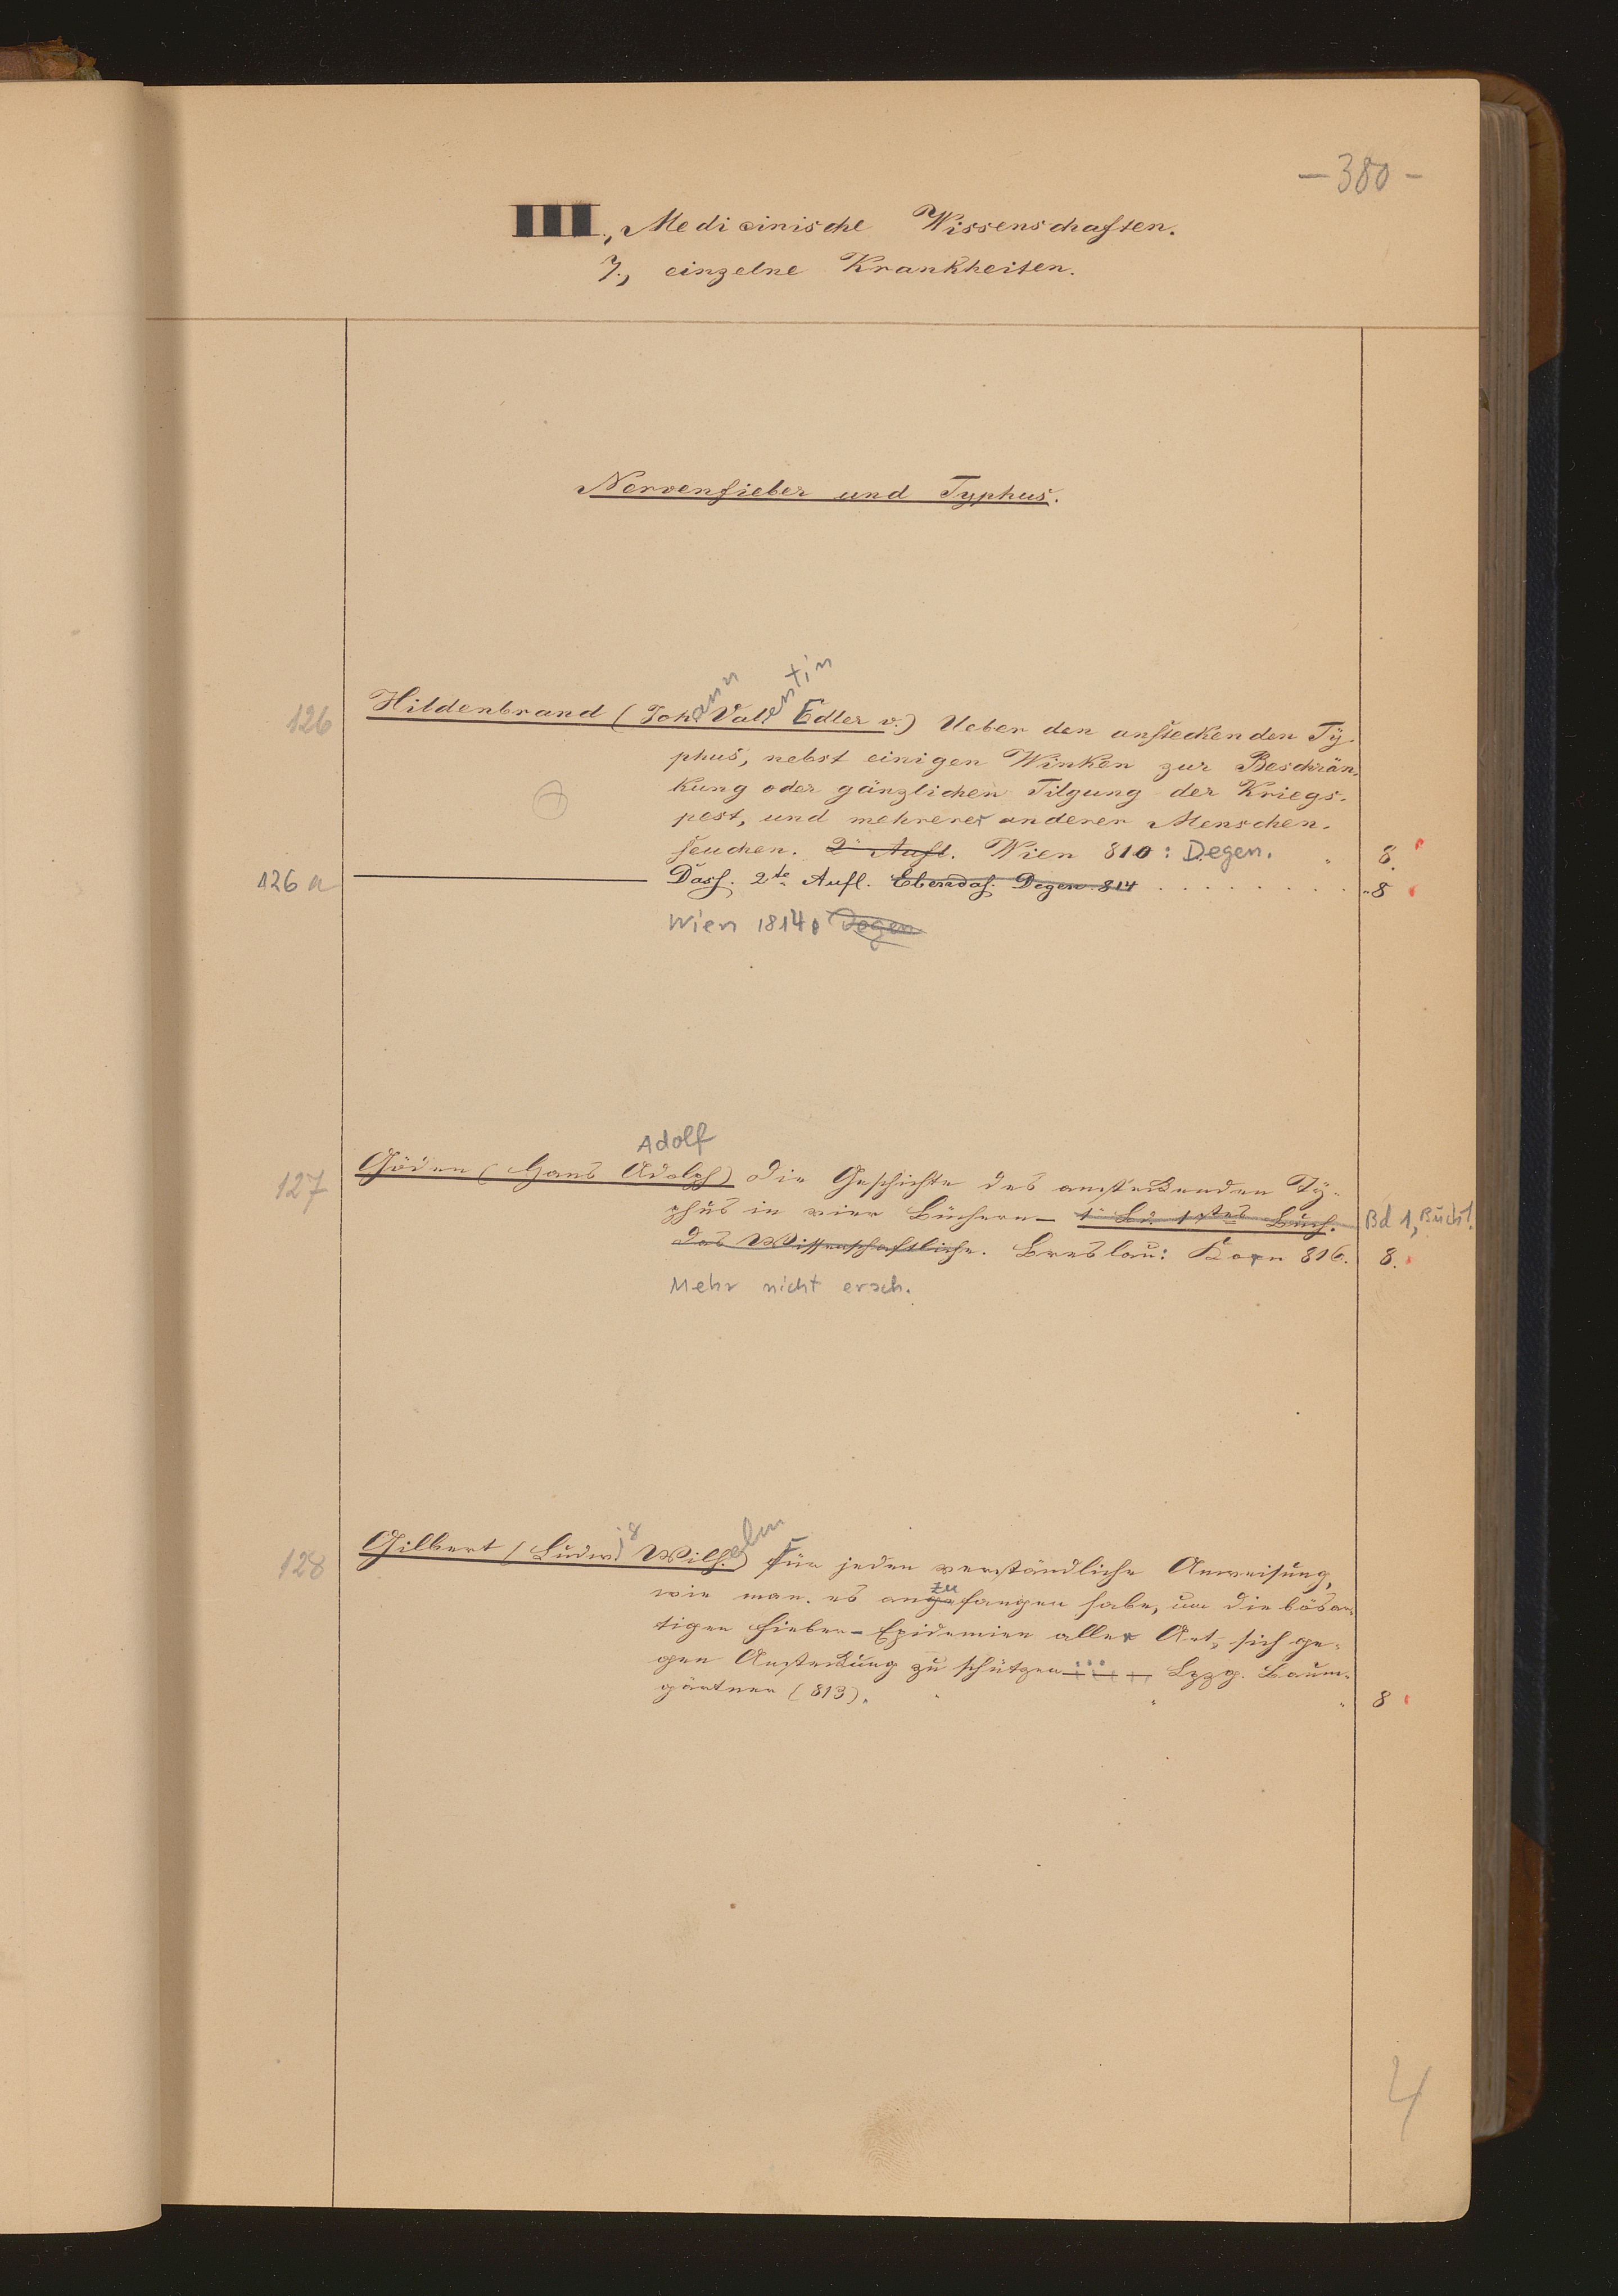 – 380 –
III., Medicinische Wissenschaften.
7., einzelne Krankheiten.
Nervenfieber und Typhus.
126 Hildenbrand (Johann Valentin Edler v.) Ueber den ansteckenden Ty-
phus, nebst einigen Winken zur Beschrän-
kung oder gänzlichen Tilgung der Kriegs-
pest, und mehrerer anderer Menschen-
seuchen. 2te Aufl. Wien 810: Degen. " 8.
126 a Dass. 2te Aufl. Ebendas. Degen 814 . . . . . . . . . . 8
Wien 1814. Degen
Adolf
127 Göden (Hans Adolph) Die Geschichte des ansteckenden Ty-
phus in vier Büchern – 1r Bd. 1stes Buch. Bd 1, Buch 1.
das Wissenschaftliche. Breslau: Korn 816. 8.
Mehr nicht ersch.
128 Gilbert (Ludwig Wilhelm) Für jeden verständliche Anweisung,
zu
wie man es angefangen habe, um die bösar-
tigen Fieber-Epidemien aller Art, sich ge-
gen Ansteckung zu schützen ... Lpzg. Baum-
gärtner (813). " " " 8
4